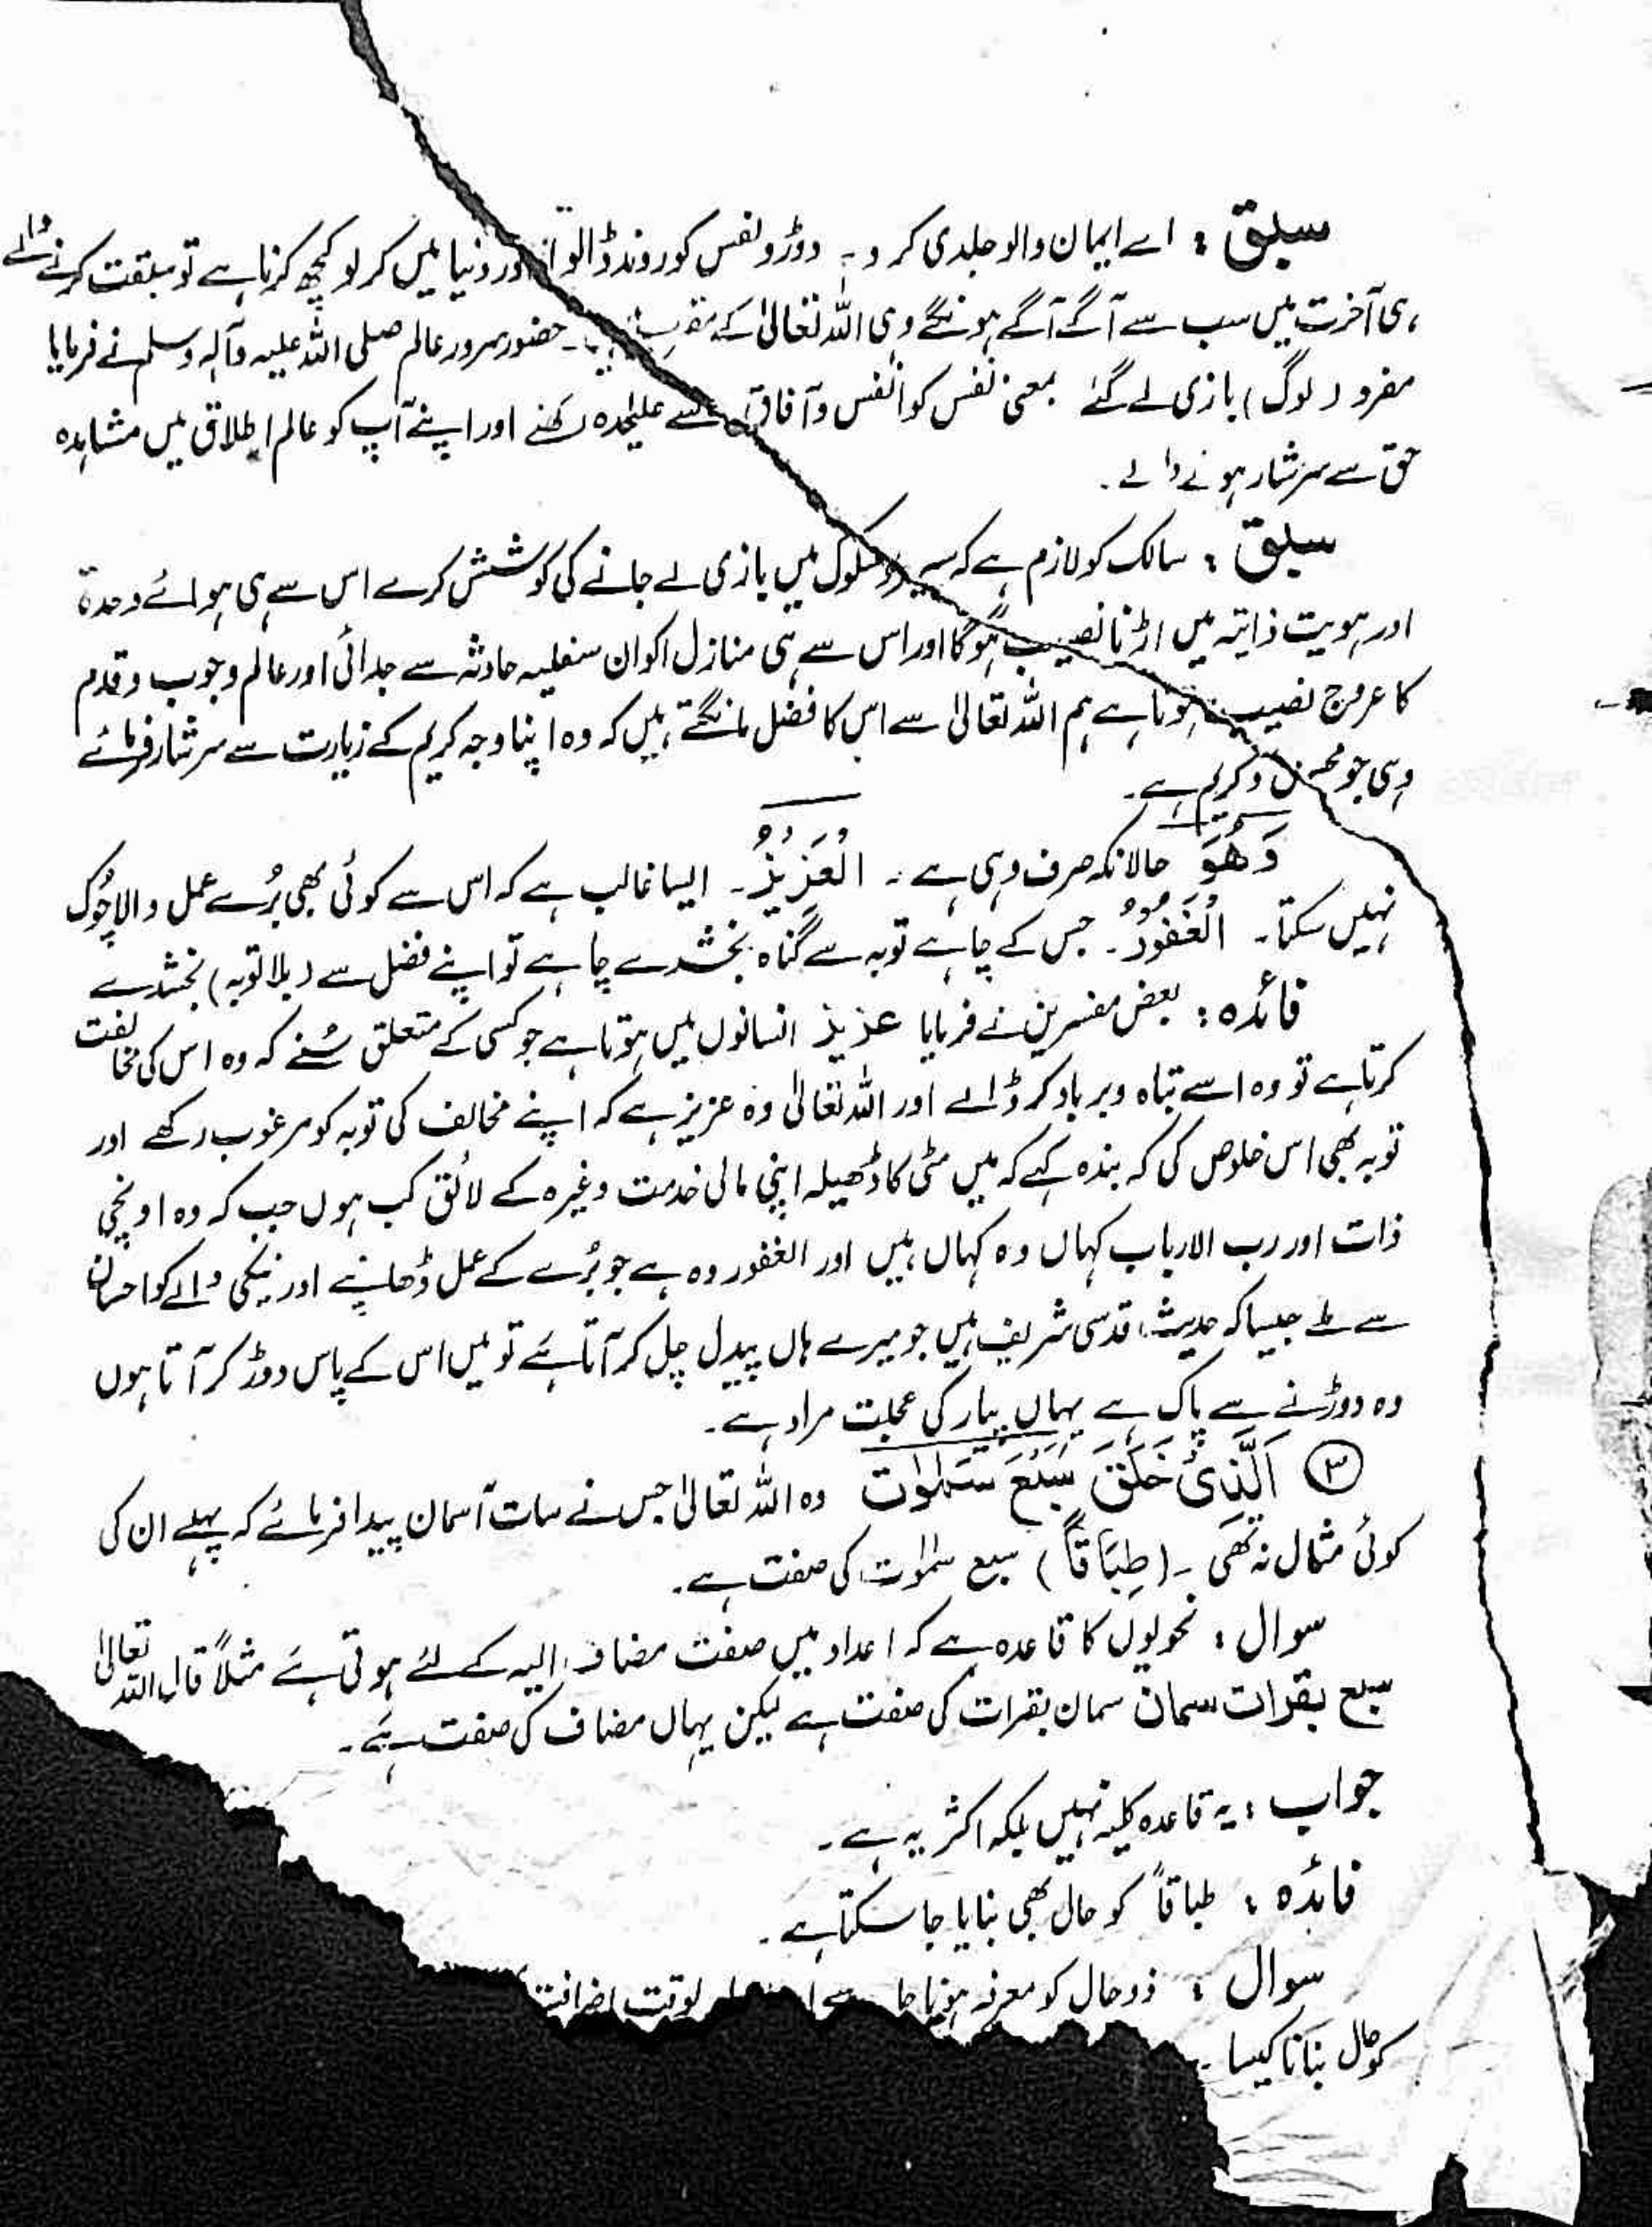 سبق : اے ایمان والو جلدی کرو ۔ دوڑو نفس کو روند ڈالو اور دنیا میں کر لو کچھ کرنا ہے تو سبقت کرنے والے
ہی آخرت میں سب سے آگے آگے ہونگے وہی اللہ تعالیٰ کے مقرب ہیں ۔ حضور سرور عالم صلی اللہ علیہ وآلہ وسلم نے فرمایا
مفرد ( لوگ ) بازی لے گئے بمعنی نفس کو انفس و آفاق سے علیحدہ رکھنے اور اپنے آپ کو عالم اطلاق میں مشاہدہ
حق سے سرشار ہونے والے ۔
سبق : سالک کو لازم ہے کہ سیر و سلوک میں بازی لے جانے کی کوشش کرے اس سے ہی ہوائے وحدۃ
اور ہویت ذاتیہ میں اڑنا نصیب ہوگا اور اس سے ہی منازل اکوان سفلیہ حادثہ سے جدائی اور عالم وجوب و قدم
کا عروج نصیب ہوتا ہے ہم اللہ تعالیٰ سے اس کا فضل مانگتے ہیں کہ وہ اپنا وجہ کریم کے زیارت سے سرشار فرمائے
وہی جو محسن و کریم ہے ۔
وَهُوَ حالانکہ صرف وہی ہے ۔ الْعَزِيْزُ ۔ ایسا غالب ہے کہ اس سے کوئی بھی بُرے عمل والا چُوک
نہیں سکتا ۔ الْغَفُوْرُ ۔ جس کے چاہے توبہ سے گناہ بخشدے چاہے تو اپنے فضل سے ( بلا توبہ ) بخشدے
فائدہ : بعض مفسرین نے فرمایا عزیز انسانوں میں ہوتا ہے جو کسی کے متعلق سُنے کہ وہ اس کی مخالفت
کرتا ہے تو وہ اسے تباہ و برباد کر ڈالے اور اللہ تعالیٰ وہ عزیز ہے کہ اپنے مخالف کی توبہ کو مرغوب رکھے اور
توبہ بھی اس خلوص کی کہ بندہ کہے کہ میں مٹی کا ڈھیلہ اپنی مالی خدمت وغیرہ کے لائق کب ہوں جب کہ وہ اونچی
ذات اور رب الارباب کہاں وہ کہاں میں اور الغفور وہ ہے جو بُرے کے عمل ڈھانپے اور نیکی والے کو احسان
سے ملے جیسا کہ حدیث قدسی شریف میں جو میرے ہاں پیدل چل کر آتا ہے تو میں اس کے پاس دوڑ کر آتا ہوں
وہ دوڑنے سے پاک ہے یہاں پیار کی عجلت مراد ہے ۔
③ اَلَّذِیْ خَلَقَ سَبْعَ سَمٰوٰت وہ اللہ تعالیٰ جس نے سات آسمان پیدا فرمائے کہ پہلے ان کی
کوئی مثال نہ تھی ۔ ( طِبَاقًا ) سبع سمٰوٰت کی صفت ہے ۔
سوال : نحویوں کا قاعدہ ہے کہ اعداد میں صفت مضاف الیہ کے لئے ہوتی ہے مثلاً قال اللہ تعالیٰ
سبع بقرات سمان سمان بقرات کی صفت ہے لیکن یہاں مضاف کی صفت ہے ۔
جواب : یہ قاعدہ کلیہ نہیں بلکہ اکثریہ ہے ۔
فائدہ : طباقاً کو حال بھی بنایا جا سکتا ہے ۔
سوال : ذوحال کو معرفہ ہونا بوقت اضافت
کو حال بنانا کیسا